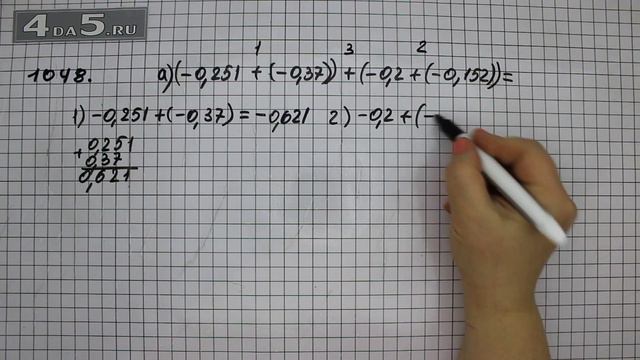 4DA5.RU
1 3 2
1048. а) (-0,251 + (-0,37)) + (-0,2 + (-0,152)) =
1) -0,251 + (-0,37) = -0,621 2) -0,2 + (-
0,251
+
0,37
0,621